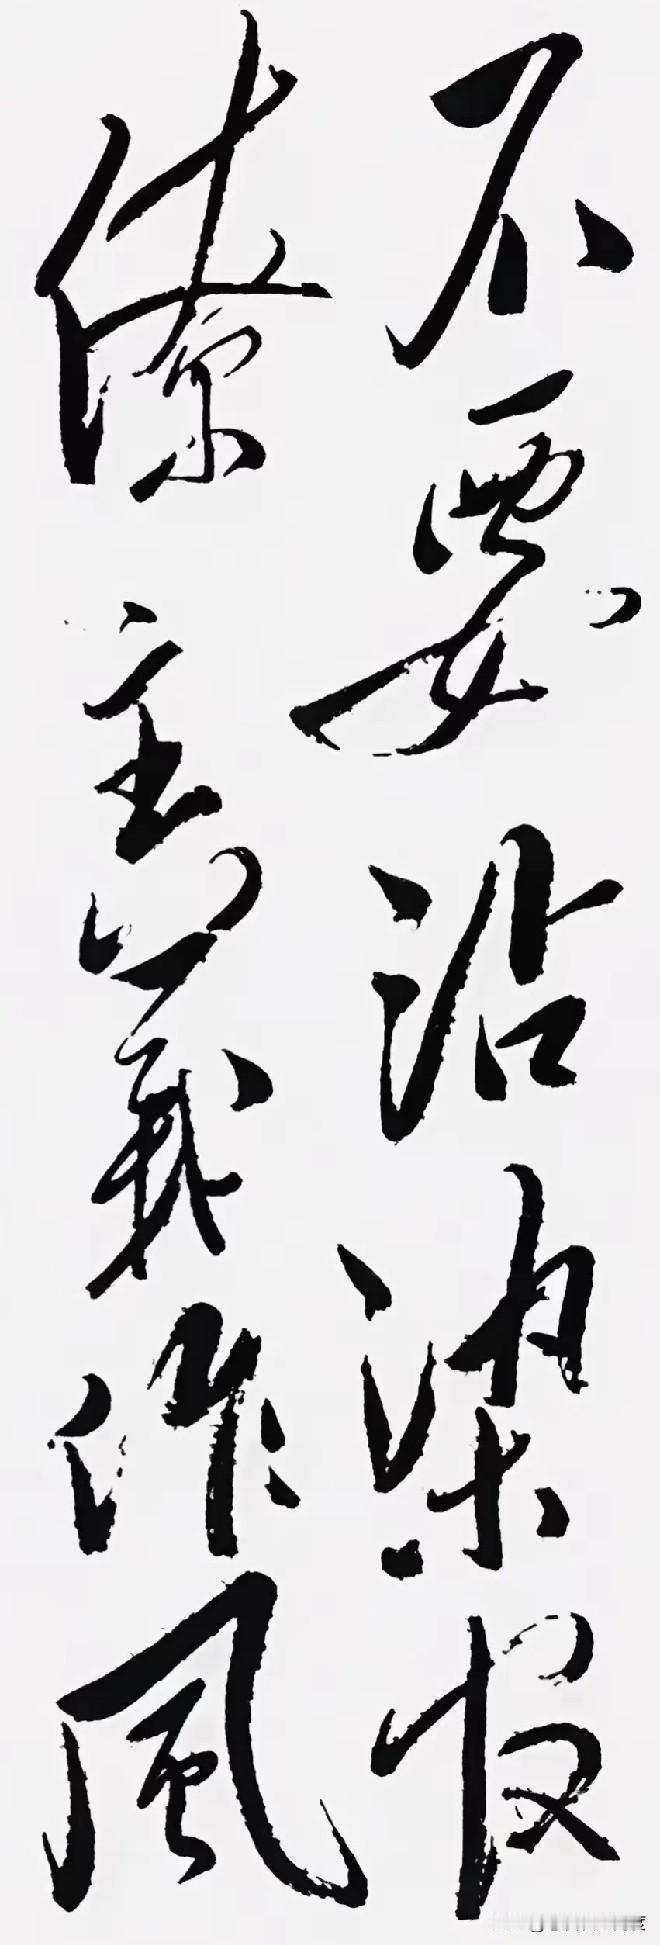 不要沾染官
僚主義作風